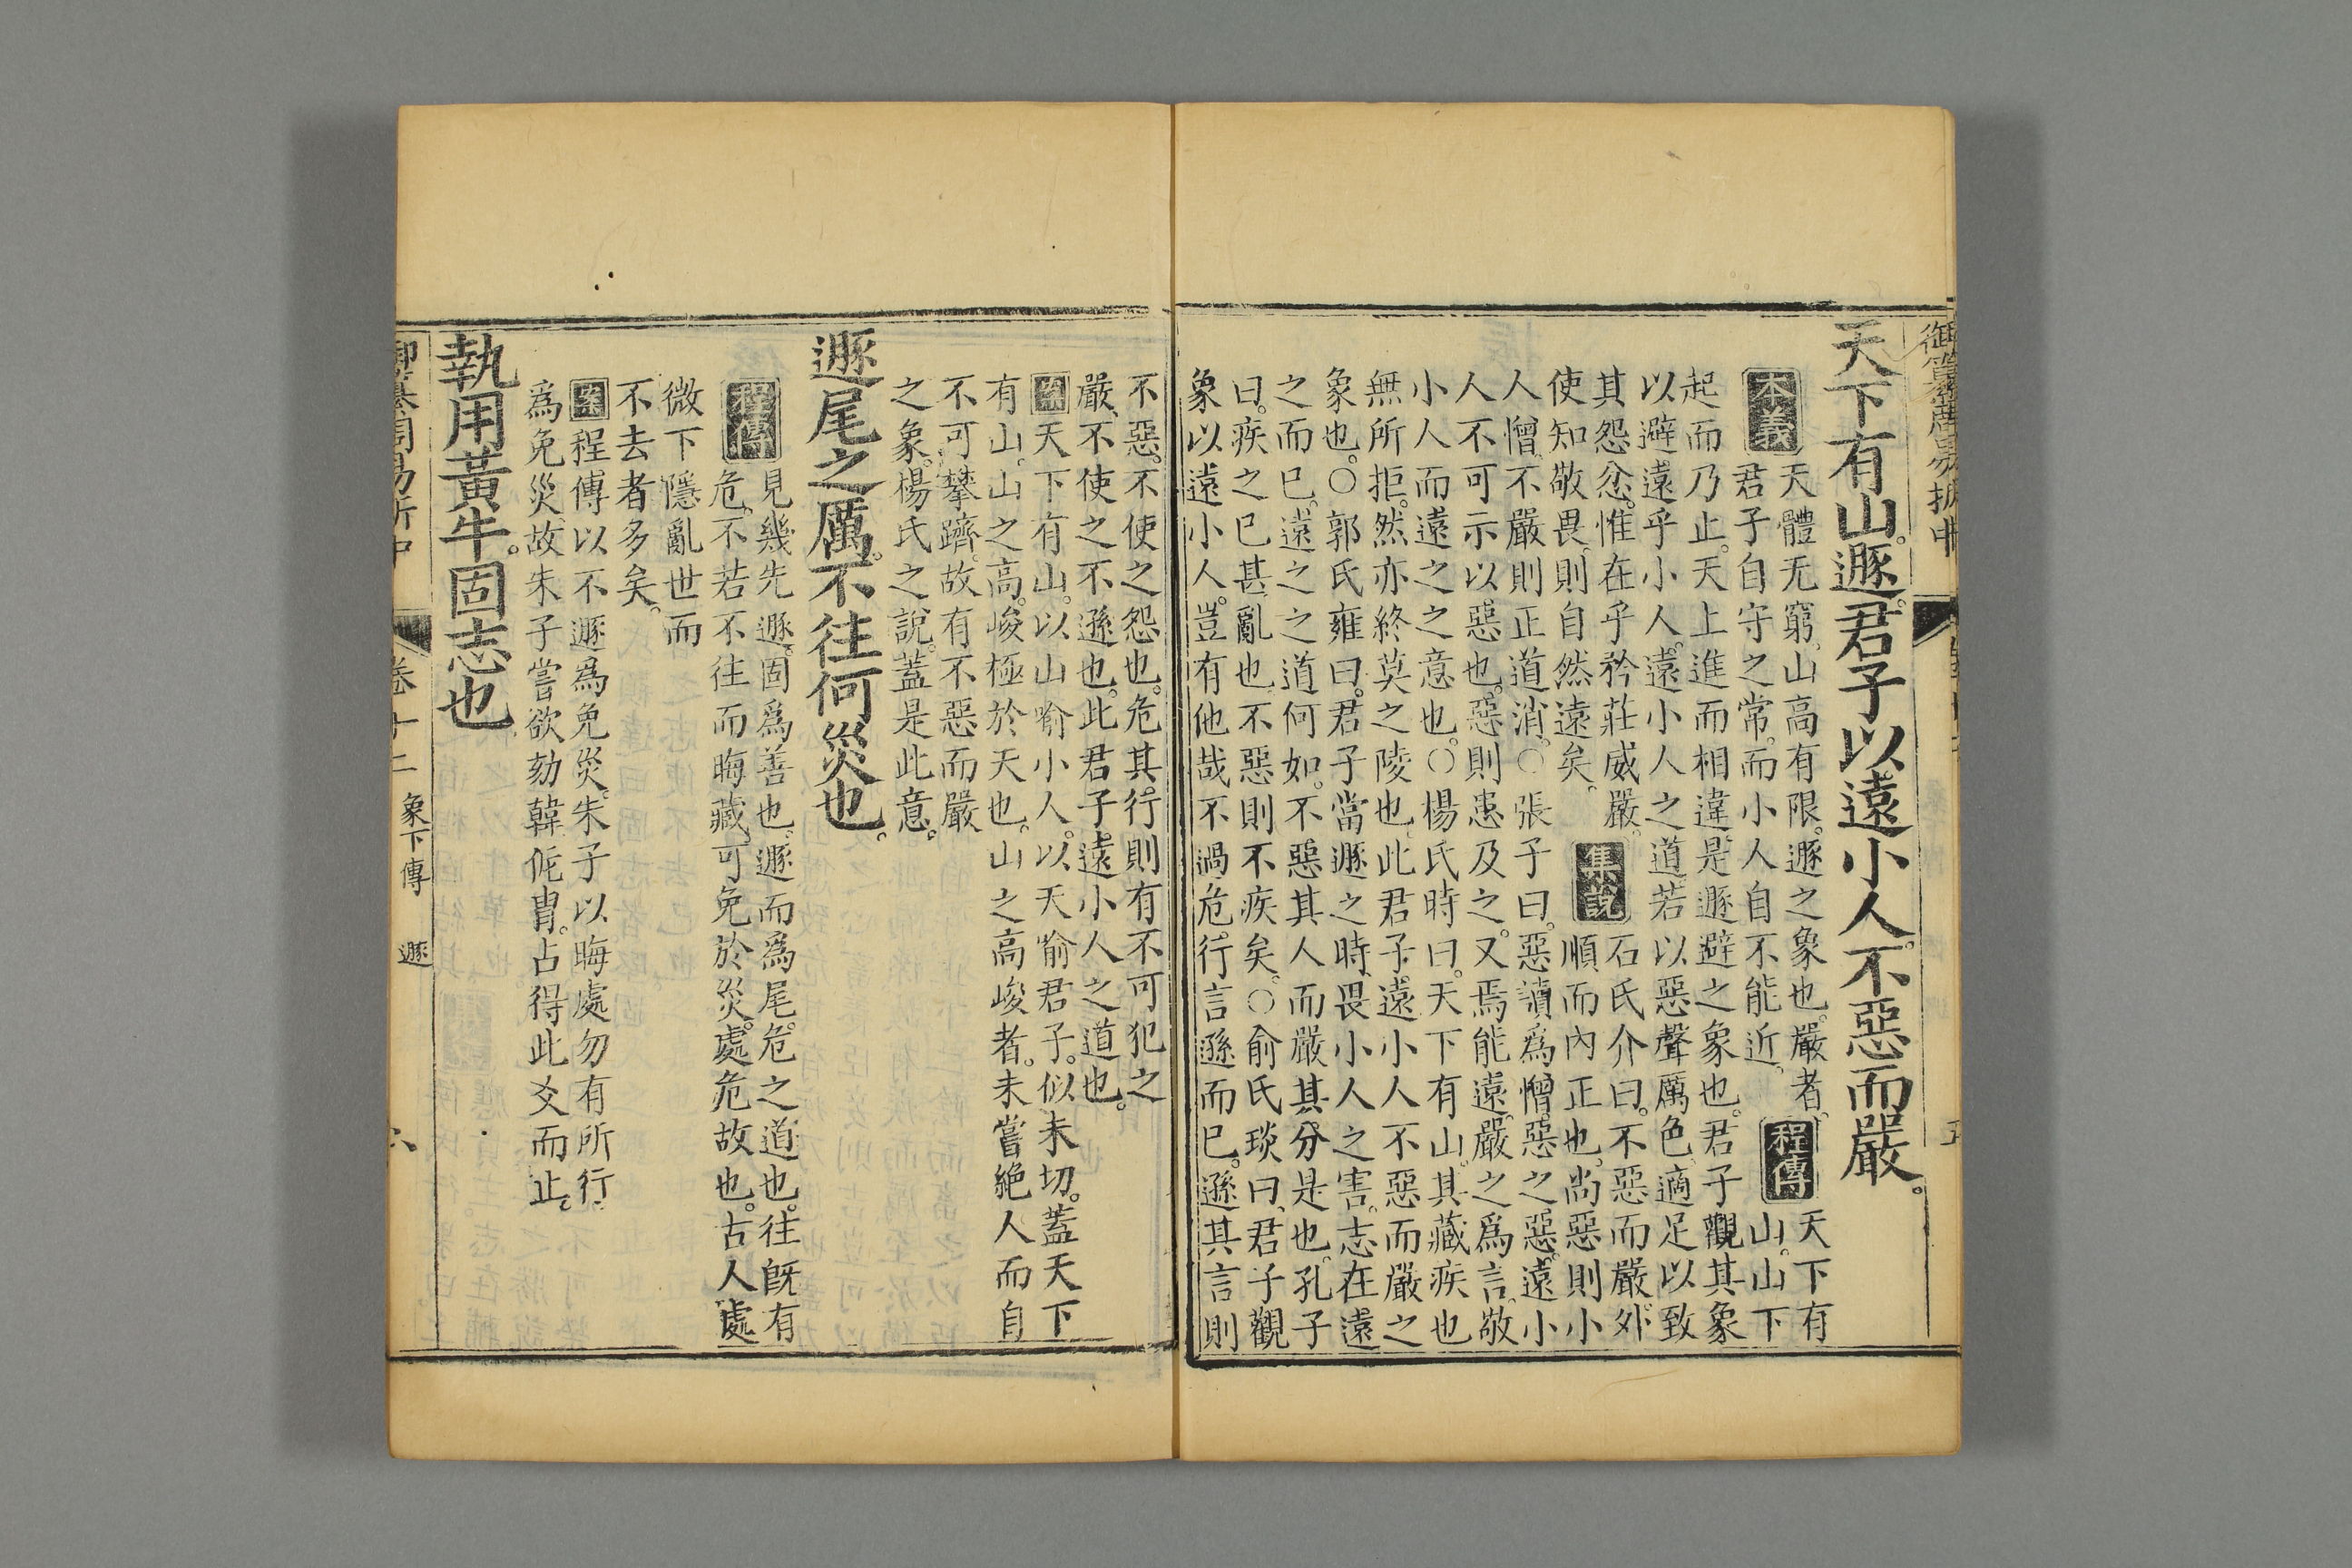 御纂周易折中
天下有山。遯。君子以遠小人。不惡而嚴。
本義
天體无窮。山高有限。遯之象也。嚴者。
君子自守之常。而小人自不能近。
程傳
天下有
山。山下
起而乃止。天上進而相違。是遯避之象也。君子觀其象
以避遠乎小人。遠小人之道。若以惡聲厲色。適足以致
其怨忿。惟在乎矜莊威嚴。
使知敬畏。則自然遠矣。
集說
石氏介曰。不惡而嚴。外
順而內正也。尚惡則小
人憎。不嚴則正道消。○張子曰。惡讀爲憎惡之惡。遠小
人不可示以惡也。惡則患及之。又焉能遠。嚴之爲言。敬
小人而遠之之意也。○楊氏時曰。天下有山。其藏疾也
無所拒。然亦終莫之陵也。此君子遠小人不惡而嚴之
象也。○郭氏雍曰。君子當遯之時。畏小人之害。志在遠
之而已。遠之之道何如。不惡其人而嚴其分是也。孔子
曰。疾之已甚。亂也。不惡則不疾矣。○俞氏琰曰。君子觀
象以遠小人。豈有他哉。不過危行言遜而已。遜其言則
不惡。不使之怨也。危其行則有不可犯之
嚴。不使之不遜也。此君子遠小人之道也。
案天下有山。以山喻小人。以天喻君子。似未切。蓋天下
有山。山之高。峻極於天也。山之高峻者。未嘗絕人而自
不可攀躋。故有不惡而嚴
之象。楊氏之說。蓋是此意。
遯尾之厲。不往何災也。
程傳
見幾先遯。固爲善也。遯而爲尾。危之道也。往旣有
危。不若不往而晦藏。可免於災。處危故也。古人處
微下。隱亂世。而
不去者多矣。
案程傳以不遯爲免災。朱子以晦處勿有所行
爲免災。故朱子嘗欲劾韓侂胄。占得此爻而止。
執用黃牛。固志也
御纂周易折中
卷十二
象下傳
遯
六